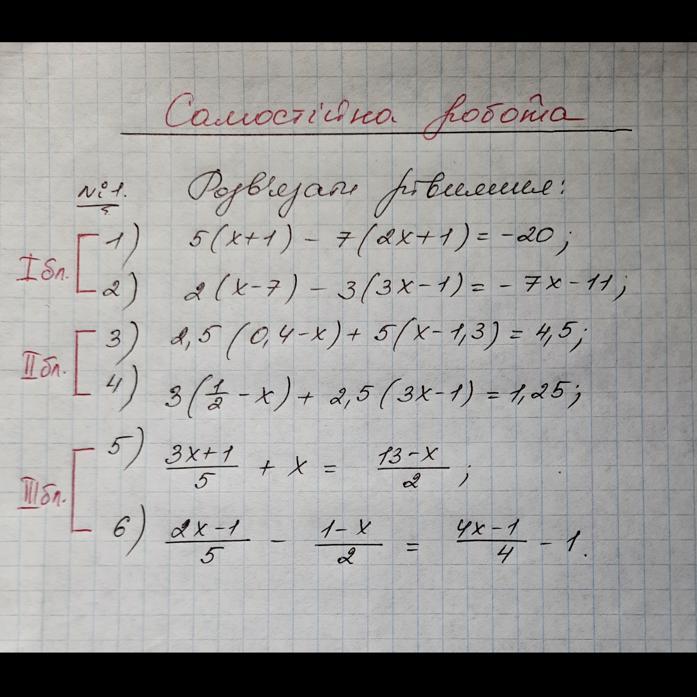 Самостійна робота
№1. Розв'язати рівняння:
I бл. 1) 5(x+1) - 7(2x+1) = -20;
2) 2(x-7) - 3(3x-1) = -7x-11;
II бл. 3) 2,5(0,4-x) + 5(x-1,3) = 4,5;
4) 3(1/2 - x) + 2,5(3x-1) = 1,25;
III бл. 5) (3x+1)/5 + x = (13-x)/2;
6) (2x-1)/5 - (1-x)/2 = (4x-1)/4 - 1.